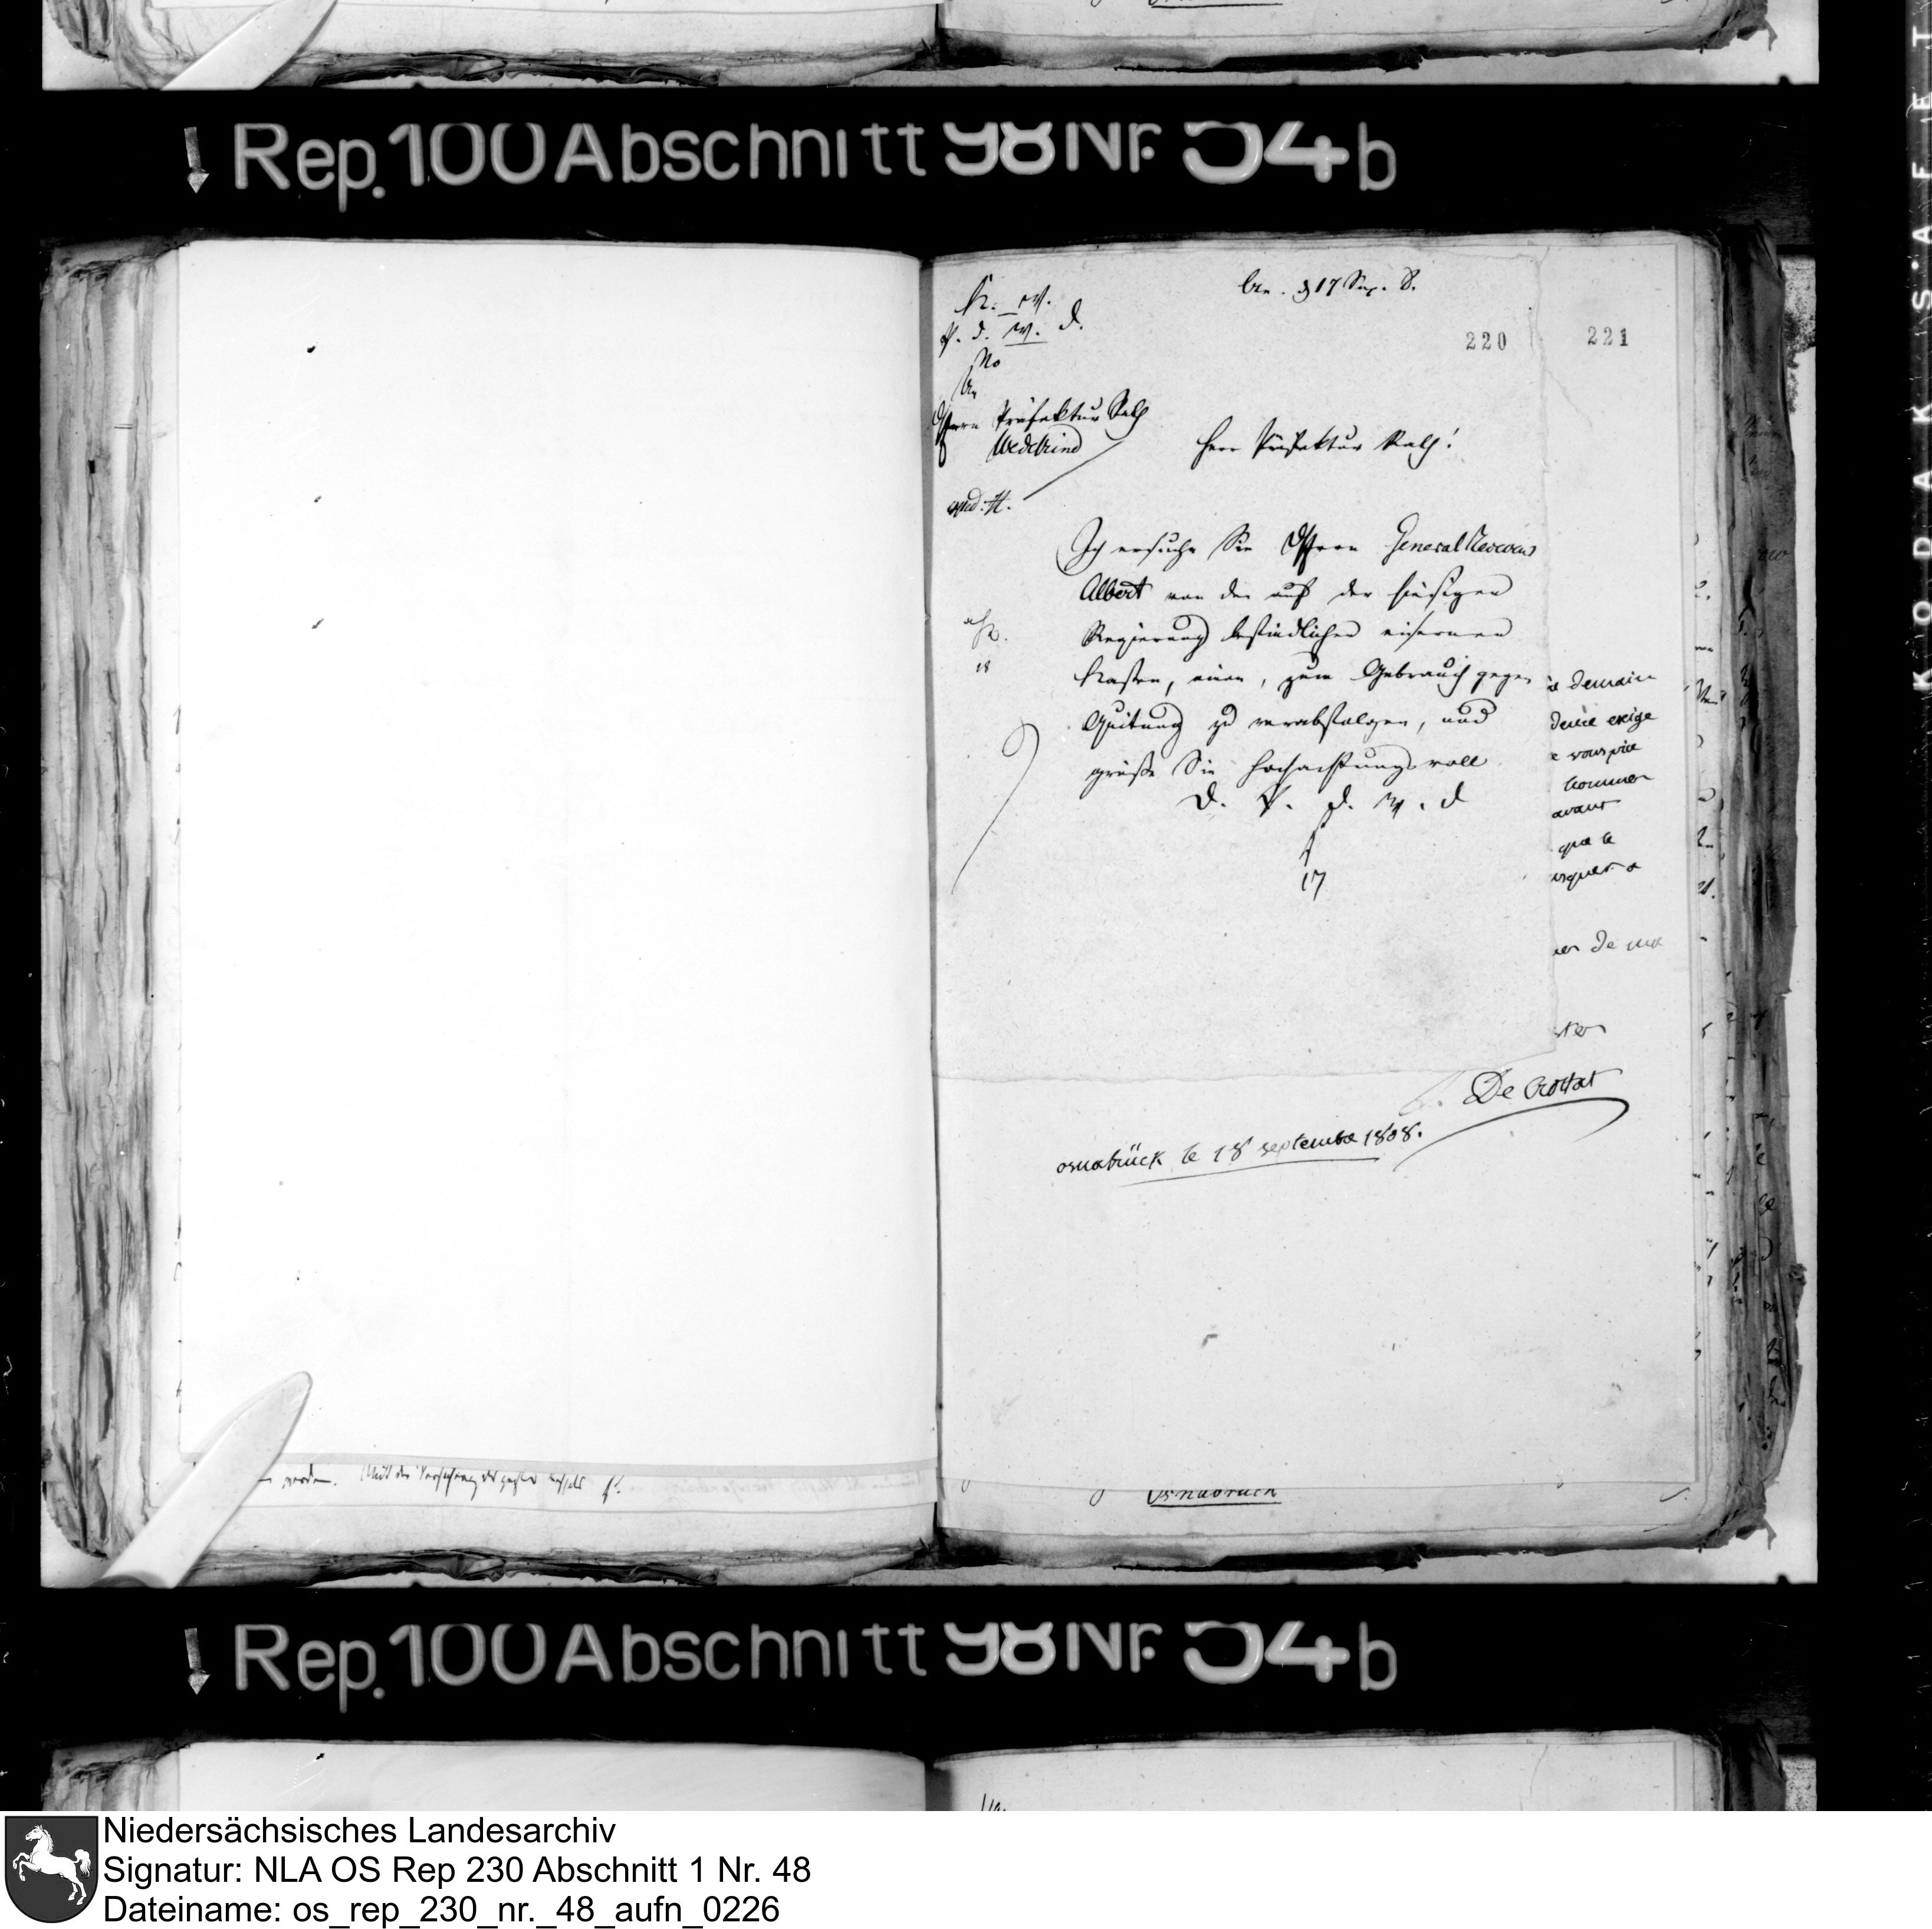 Rep. 100 Abschnitt 98 Nr. 54 b
d 17 Sep. 8.
K. W.
P. d. W. D.
No
An
220
221
Herrn Präfektur Rath
Wedekind
Herr Präfektur Rath!
Ich ersuche Sie Herrn General Receveur
Albert von den auf der hiesigen
Regierung befindlichen eisernen
Kasten, einen, zum Gebrauch gegen
Quitung zu verabfolgen, und
grüße Sie hochachtungsvoll
D. P. d. W. d
17
18
demain
exige
vous prie
avant
que le
De Crottat
osnabrück le 18 septembre 1808.
werden.
Osnabrück
Rep. 100 Abschnitt 98 Nr. 54 b
KODAK SAFET
Niedersächsisches Landesarchiv
Signatur: NLA OS Rep 230 Abschnitt 1 Nr. 48
Dateiname: os_rep_230_nr._48_aufn_0226